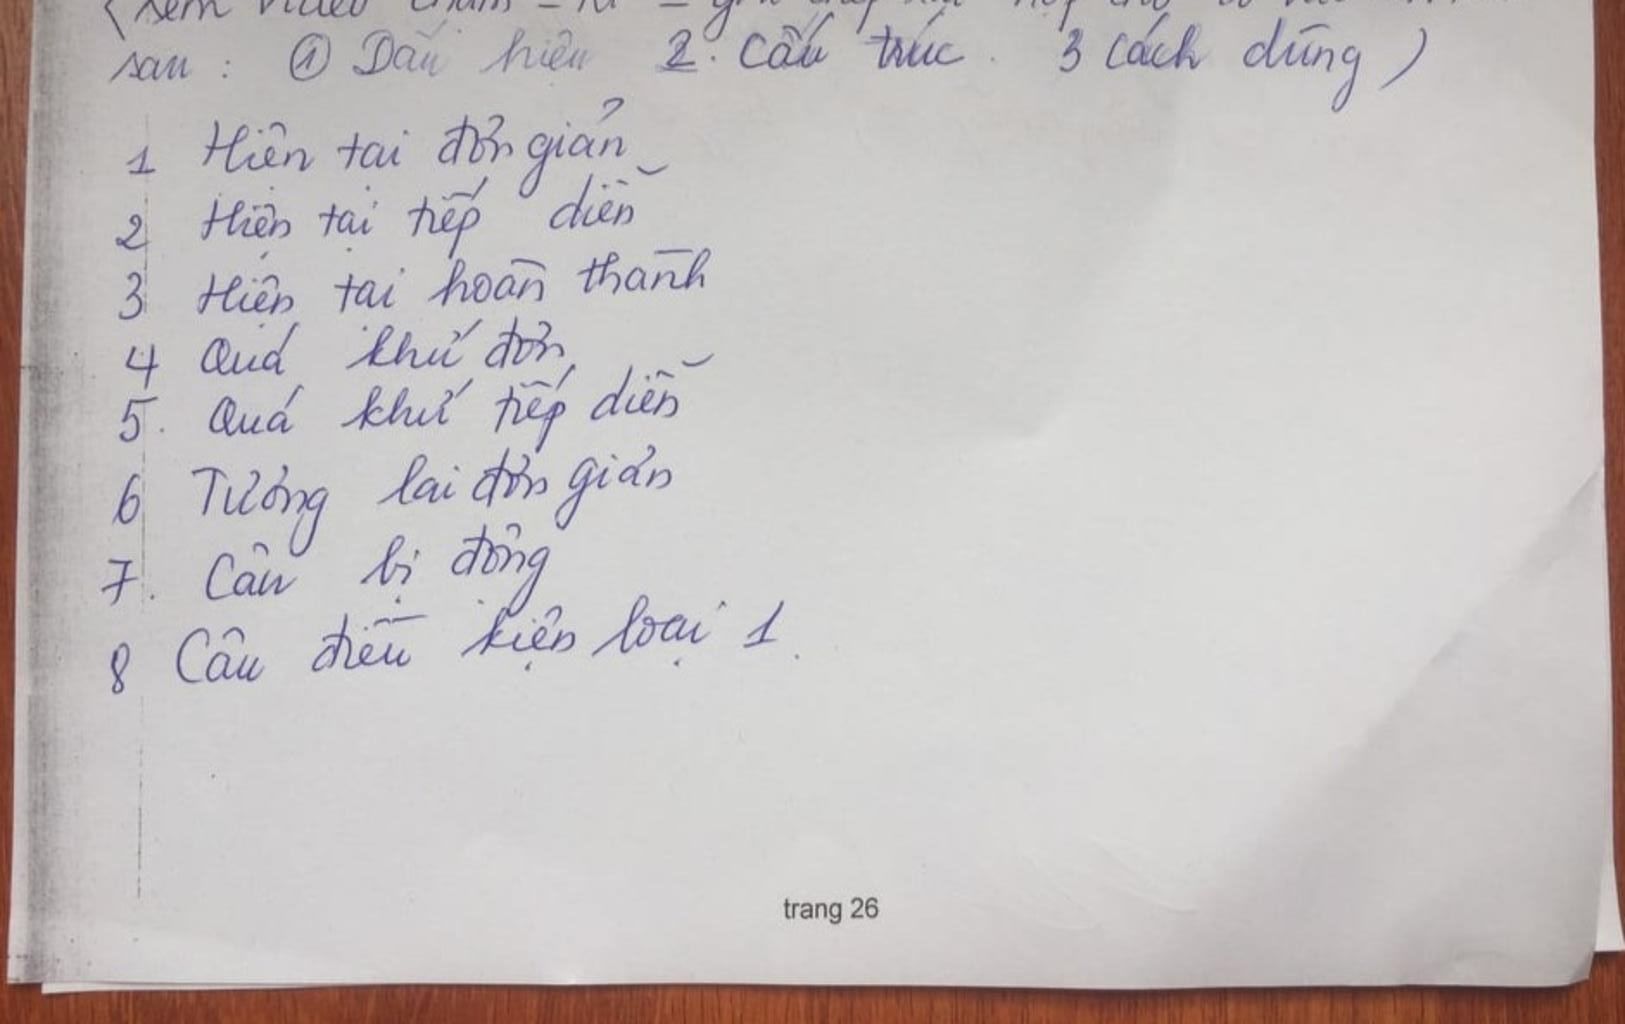 (xem video chậm - kĩ - ghi chép
sau : ① Dấu hiệu 2. Cấu trúc. 3 Cách dùng)
1 Hiện tại đơn giản
2 Hiện tại tiếp diễn
3 Hiện tại hoàn thành
4 Quá khứ đơn
5. Quá khứ tiếp diễn
6 Tương lai đơn giản
7. Câu bị động
8 Câu điều kiện loại 1.
trang 26